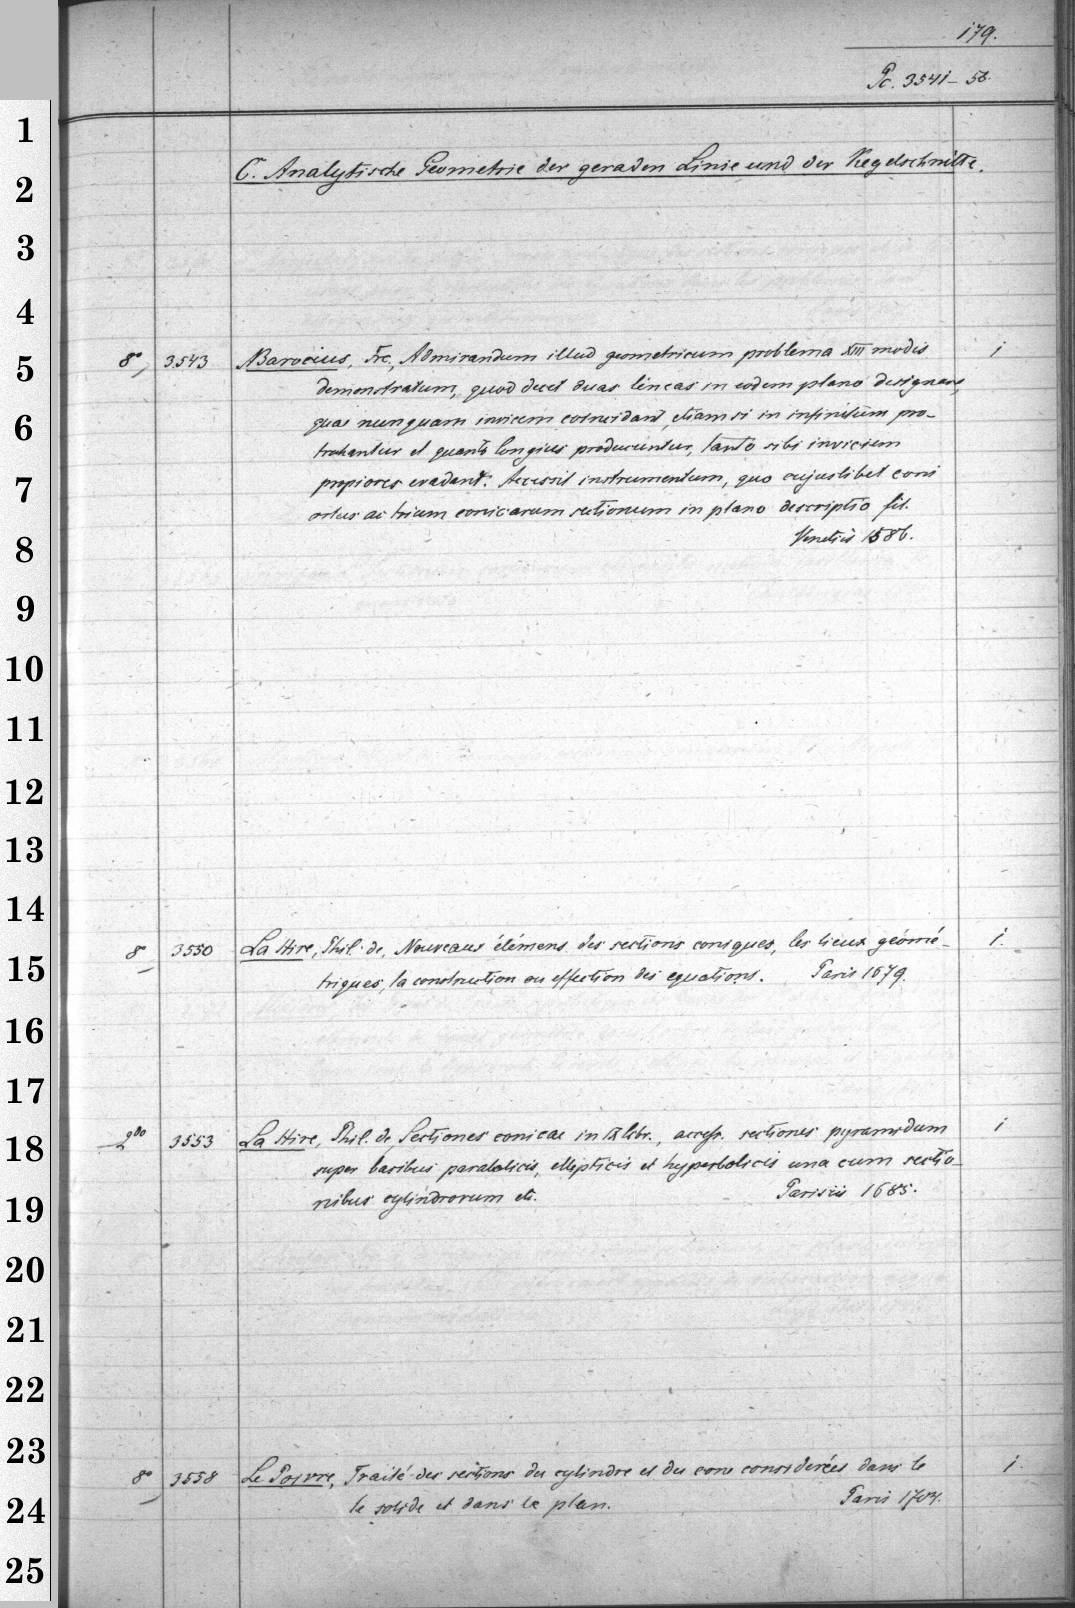 179.
Pc. 3541-58.
C. Analytische Geometrie der geraden Linie und der Kegelschnitte.
8°, 3543 Barocius, Frc., Admirandum illud geometricum problema XIII modis 1
demonstratum, quod docet duas lineas in eodem plano designare,
quae nunquam invicem coincidant, etiamsi in infinitum pro-
trahantur et quanto longius producuntur, tanto sibi invicem
propiores evadant. Accessit instrumentum, quo cujuslibet coni
ortus ac trium conicarum sectionum in plano descriptio fit.
Venetiis 1586.
8° 3550 La Hire, Phil. de, Nouveaux élémens des sections coniques, les lieux géomé- 1.
triques, la construction ou effection des equations. Paris 1679.
2° 3553 La Hire, Phil. de Sectiones conicae in IX libr., access. sectiones pyramidum 1
super basibus parabolicis, ellipticis et hyperbolicis una cum sectio-
nibus cylindrorum etc. Parisiis 1685.
8° 3558 Le Poivre, Traité des sections du cylindre et du cone considerées dans le 1
le solide et dans le plan. Paris 1704.
1
2
3
4
5
6
7
8
9
10
11
12
13
14
15
16
17
18
19
20
21
22
23
24
25